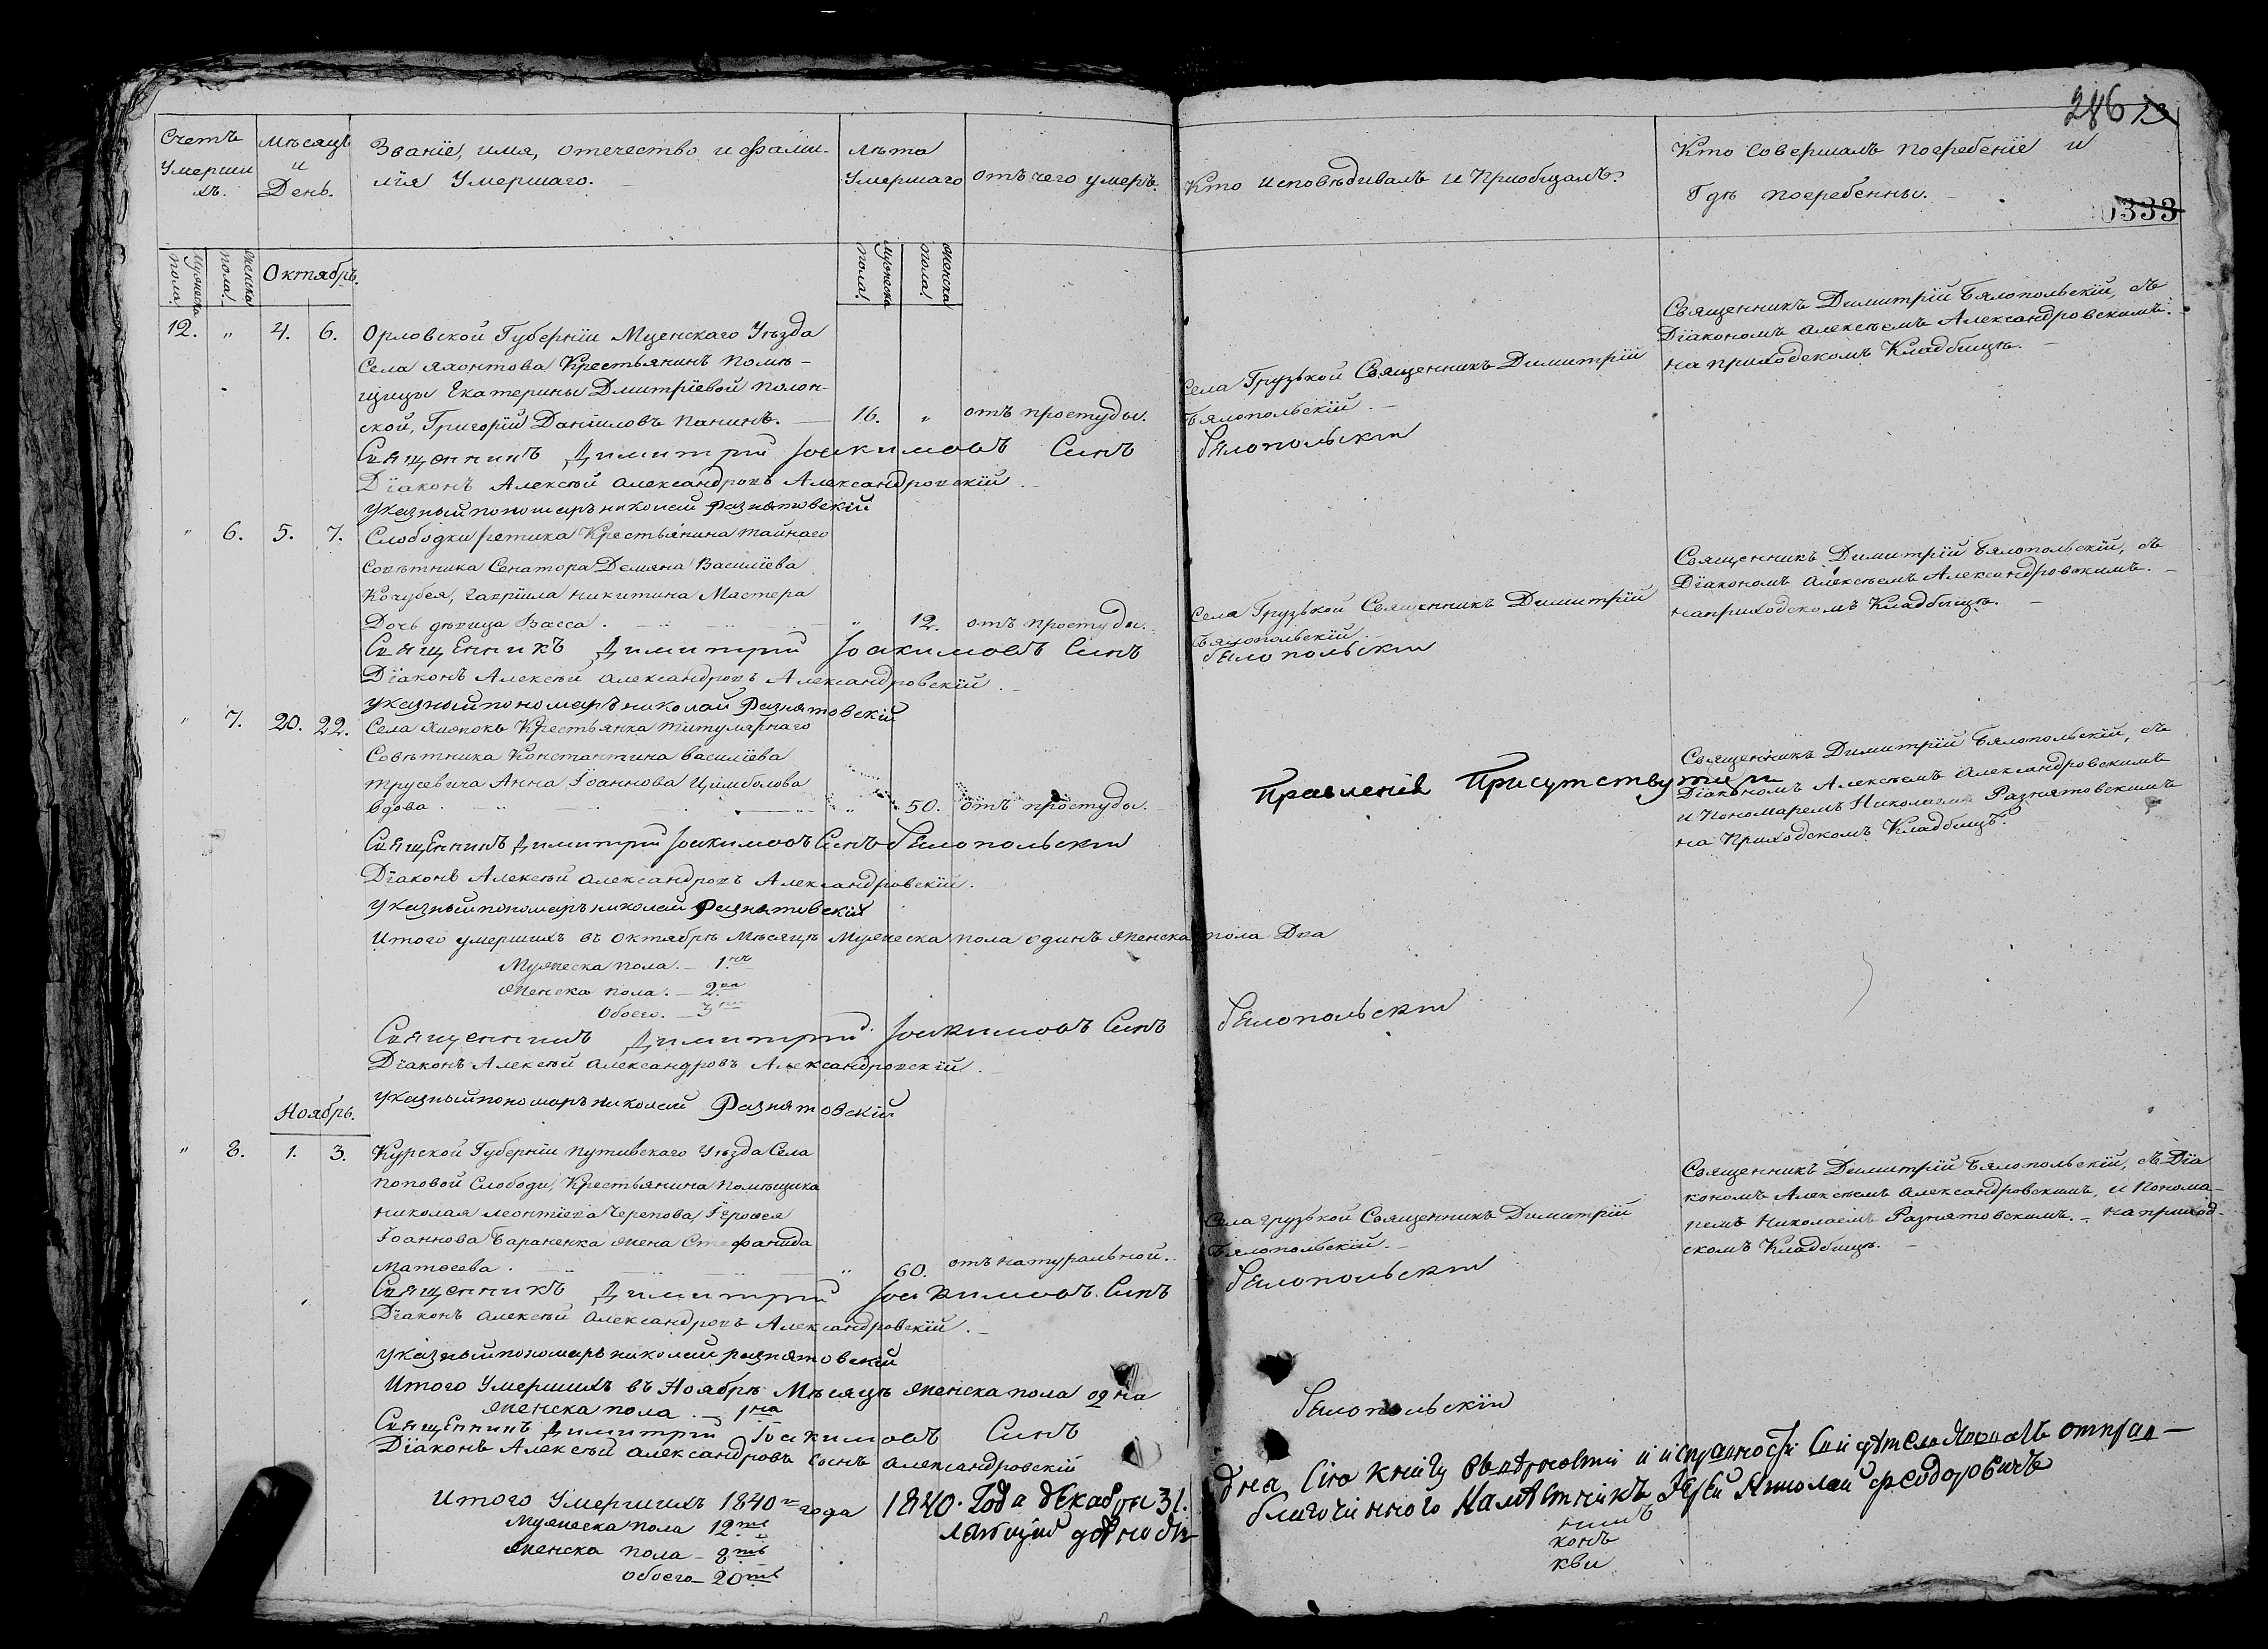 286 13
333
Счетъ Умершихъ.
Мѣсяцъ и День.
Званіе, имя, отечество и фамилія Умершаго.
Лѣта Умершаго
отъ чего умеръ.
Кто исповѣдивалъ и Приобщалъ.
Кто Совершалъ погребеніе и Гдѣ погребенны.
Мужеска пола.
Женска пола.
Октябрь.
Мужеска пола.
Женска пола.
12. „ 4. 6. Орловской Губерніи Мценскаго Уѣзда
Села Яхонтова Крестьянинъ помѣ-
щицы Екатерины Дмитріевой Полон-
ской, Григорій Даніиловъ Панинъ. — 16. „ отъ простуды.
Села Грузькой Священникъ Димитрій
Бялопольскій.
Священникъ Димитрій Бялопольскій, съ
Діакономъ Алексѣемъ Александровскимъ.
на приходскомъ Кладбищѣ.
Священникъ Димитрій Іоакимовъ Синъ Бялопольскій
Діаконъ Алексѣй Александровъ Александровскій.
Указный пономарь николай Разнятовскій
„ 6. 5. 7. Слободки Крестьянина тайнаго
Совѣтника Сенатора Демяна Василіева
Кочубея, Гавріила Никитина Мастера
Дочь дѣвица Васса. „ 12. отъ простуды.
Села Грузькой Священникъ Димитрій
Бялопольскій.
Священникъ Димитрій Бялопольскій, съ
Діакономъ Алексѣемъ Александровскимъ.
на приходскомъ Кладбищѣ.
Священникъ Димитрій Іоакимовъ Синъ Бялопольскій
Діаконъ Алексѣй Александровъ Александровскій.
Указный пономарь николай Разнятовскій
„ 7. 20. 22. Села Крестьянка Титулярнаго
Совѣтника Константина Василіева
Трусевича Анна Іоаннова Цимбалова
вдова. „ 50. отъ простуды.
Правленія Присутствующій
Священникъ Димитрій Бялопольскій, съ
Діакономъ Алексѣемъ Александровскимъ
и Пономаремъ Николаемъ Разнятовскимъ
на Приходскомъ Кладбищѣ.
Священникъ Димитрій Іоакимовъ Синъ Бялопольскій
Діаконъ Алексѣй Александровъ Александровскій.
Указный пономарь николай Разнятовскій
Итого умершихъ въ Октябрѣ Мѣсяцѣ Мужеска пола одинъ женска пола Два
Мужеска пола. — 1.нъ
Женска пола. — 2.ва
Обоего. — 3.ри
Священникъ Димитрій Іоакимовъ Синъ Бялопольскій
Діаконъ Алексѣй Александровъ Александровскій.
Указный пономарь николай Разнятовскій
Ноябрь.
„ 8. 1. 3. Курской Губерніи Путивскаго Уѣзда Села
Поповой Слободи, Крестьянина Помѣщика
Николая Леонтіева Черепова, Герофея
Іоаннова Бараненка жена Стефанида
Матѳеева. „ 60. отъ натуральной.
Села Грузькой Священникъ Димитрій
Бялопольскій.
Священникъ Димитрій Бялопольскій, съ Діа
кономъ Алексѣемъ Александровскимъ, и Понома-
ремъ Николаемъ Разнятовскимъ. на приход-
скомъ Кладбищѣ.
Священникъ Димитрій Іоакимовъ Синъ Бялопольскій
Діаконъ Алексѣй Александровъ Александровскій.
Указный пономарь николай разнятовскій
Итого Умершихъ въ Ноябрѣ Мѣсяцѣ женска пола одна
женска пола. — 1на
Священникъ Димитрій Іоакимовъ Синъ Бялопольскій
Діаконъ Алексѣй Александровъ Сынъ Александровскій
Итого Умершихъ 1840го года
Мужеска пола 12.ть
Женска пола — 8.мь
Обоего — 20.ть
1840. Года декабря 31. дня Сію книгу
благочинного Намѣстникъ Іерей Николай Феодоровичъ
никъ
конъ
кви